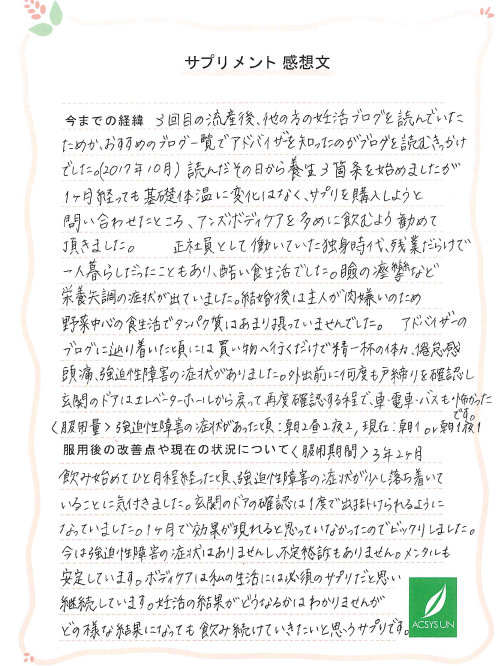 サプリメント 感想文
今までの経緯 3回目の流産後、他の方の妊活ブログを読んでいた
ためか、おすすめのブログ一覧でアドバイザーを知ったのがブログを読むきっかけ
でした。(2017年10月) 読んだその日から養生3箇条を始めましたが
1ヶ月経っても基礎体温に変化はなく、サプリを購入しようと
問い合わせたところ、アンズボディケアを多めに飲むよう勧めて
頂きました。 正社員として働いていた独身時代、残業だらけで
一人暮らしだったこともあり、酷い食生活でした。瞼の痙攣など
栄養失調の症状が出ていました。結婚後は主人が肉嫌いのため
野菜中心の食生活でタンパク質はあまり摂っていませんでした。 アドバイザーの
ブログに辿り着いた頃には買い物へ行くだけで精一杯の体力、倦怠感
頭痛、強迫性障害の症状がありました。外出前に何度も戸締りを確認し
玄関のドアはエレベーターホールから戻って再度確認する程で、車・電車・バスも怖かった
です。
〈服用量〉強迫性障害の症状があった頃：朝2昼2夜2, 現在：朝1 or 朝1夜1
服用後の改善点や現在の状況について〈服用期間〉3年2ヶ月
飲み始めてひと月程経った頃、強迫性障害の症状が少し落ち着いて
いることに気付きました。玄関のドアの確認は1度で出掛けられるように
なっていました。1ヶ月で効果が現れると思っていなかったのでビックリしました。
今は強迫性障害の症状はありませんし、不定愁訴もありません。メンタルも
安定しています。ボディケアは私の生活には必須のサプリだと思い
継続しています。妊活の結果がどうなるかはわかりませんが
どの様な結果になっても飲み続けていきたいと思うサプリです。
ACSYS UN